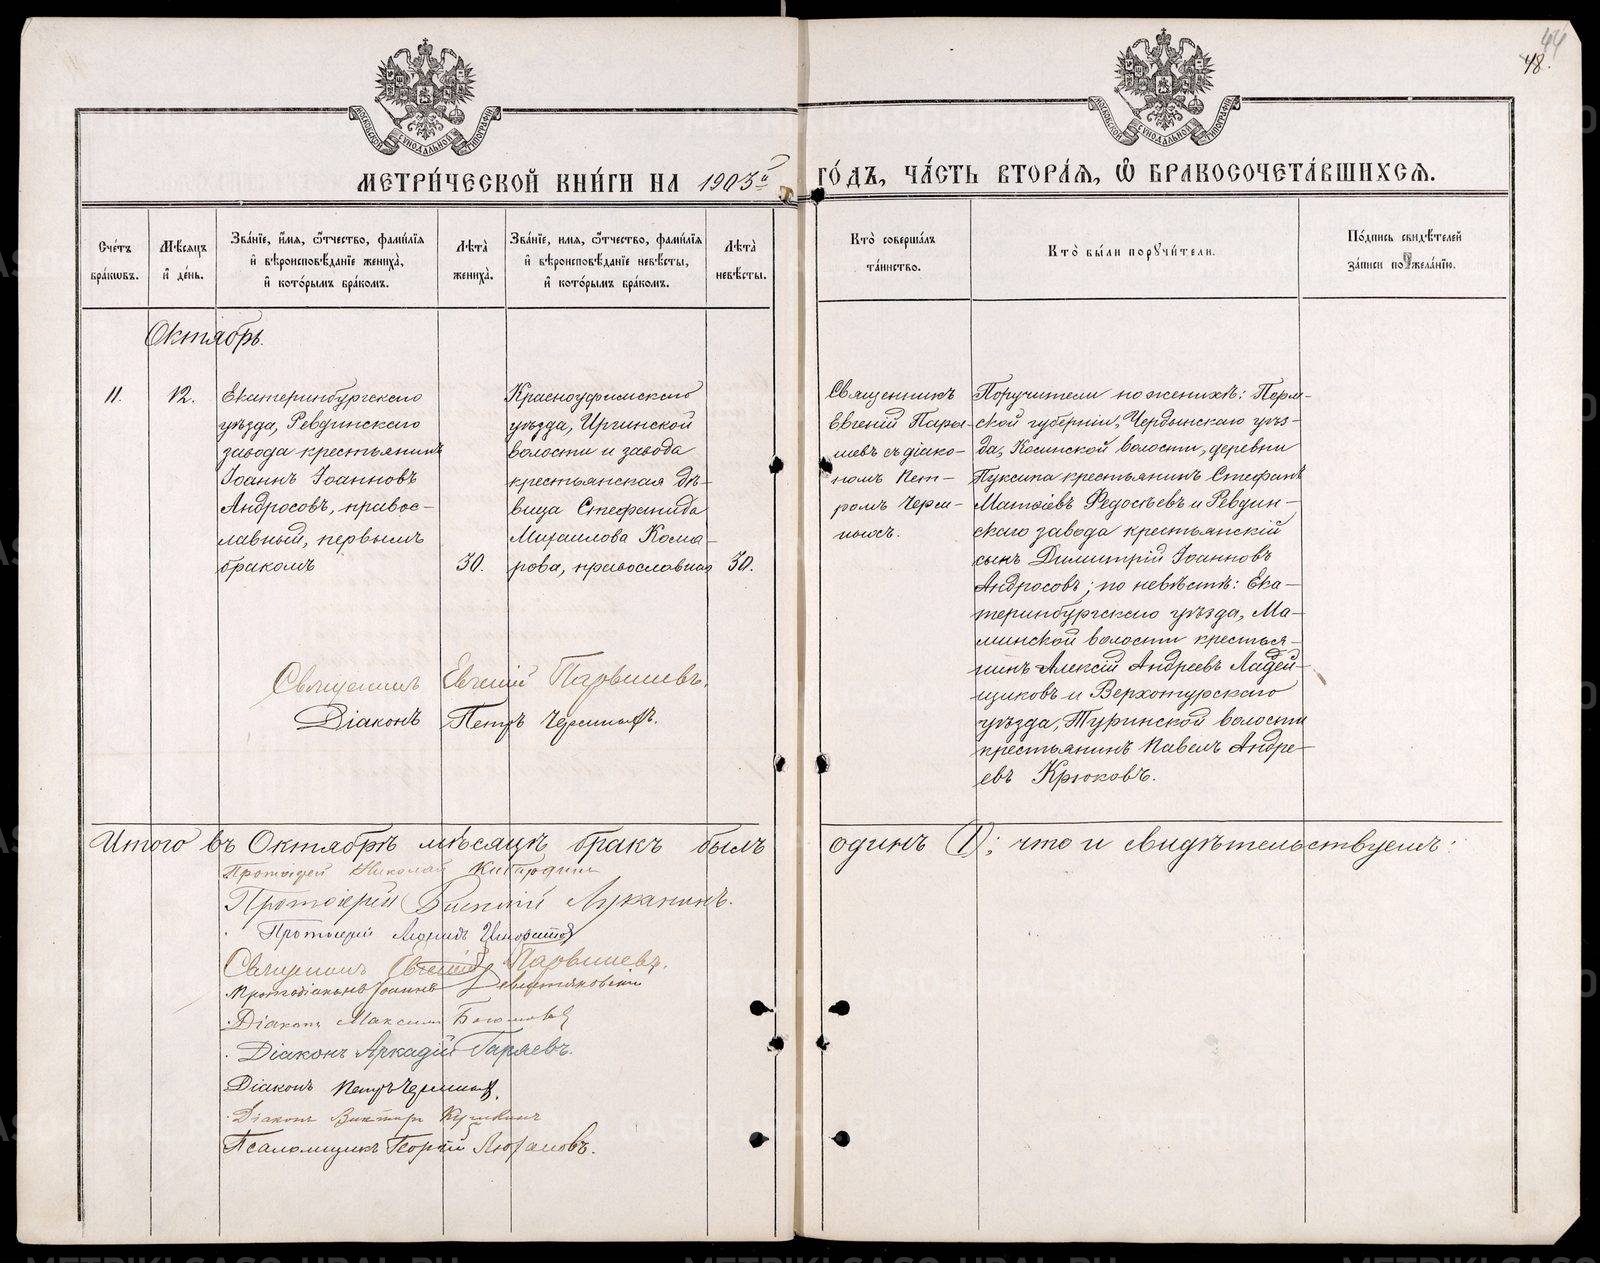 44
48.
МОСКОВСКОЙ СѴНОДАЛЬНОЙ ТИПОГРАФІИ
МОСКОВСКОЙ СѴНОДАЛЬНОЙ ТИПОГРАФІИ
МЕТРИ́ЧЕСКОЙ КНИ́ГИ НА 1903й ГО́ДЪ, ЧА́СТЬ ВТОРА́Я, Ѽ БРАКОСОЧЕТА́ВШИХСЯ.
Сче́тъ
бра́кѡвъ.
Мѣ́сяцъ
и҆ де́нь.
Зва́нїе, и҆́мя, ѻ҆́тчество, фами́лїя
и҆ вѣроисповѣ́данїе жениха̀,
и҆ кото́рымъ бра́комъ.
Лѣ́та̀
жениха̀.
Зва́нїе, и҆мя, ѻ҆́тчество, фами́лїя
и҆ вѣроисповѣ́данїе невѣ́сты,
и҆ кото́рымъ бра́комъ.
Лѣ́та̀
невѣ́сты.
Кто̀ соверша́лъ
та́инство.
Кто̀ бы́ли порꙋчи́тели.
По́дпись свидѣ́телей
за́писи по жела́нїю.
Октябрь.
11.
12.
Екатеринбургскаго
уѣзда, Ревдинскаго
завода крестьянинъ
Іоаннъ Іоанновъ
Андросовъ, правос-
лавный, первымъ
бракомъ
30.
Красноуфимскаго
уѣзда, Иргинской
волости и завода
крестьянская дѣ-
вица Стефанида
Михаилова Кома-
рова, православная
30.
Священникъ
Евгеній Пары-
шевъ съ діако-
номъ Пет-
ромъ Черм-
ныхъ.
Поручители по женихѣ: Перм-
ской губерніи, Чердынскаго уѣз-
да, Косинской волости, деревни
Пуксипа крестьянинъ Стефанъ
Матѳіевъ Федосѣевъ и Ревдин-
скаго завода крестьянскій
сынъ Димитрій Іоанновъ
Андросовъ; по невѣстѣ: Ека-
теринбургскаго уѣзда, Ма-
минской волости крестья-
нинъ Алексій Андреевъ Ладей-
щиковъ и Верхотурскаго
уѣзда, Туринской волости
крестьянинъ Павелъ Андре-
евъ Крюковъ.
Священникъ Евгеній Парышевъ.
Діаконъ Петръ Чермныхъ.
Итого въ Октябрѣ мѣсяцѣ бракъ былъ одинъ (1); что и свидѣтельствуемъ:
Протоіерей Николай
Протоіерей Луканинъ.
Протоіерей
Священникъ Евгеній Парышевъ.
Протодіаконъ Іоаннъ
Діаконъ Максимъ
Діаконъ Аркадій Гаряевъ.
Діаконъ Петръ Чермныхъ.
Діаконъ Викторъ
Псаломщикъ Георгій
METRIKI.GASO-URAL.RU